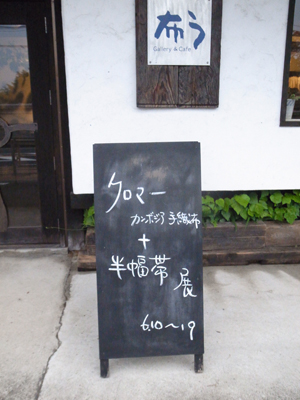 布う
Gallery & Cafe
クロマー
カンボジア手織布
+
半幅帯
展
6.10〜19